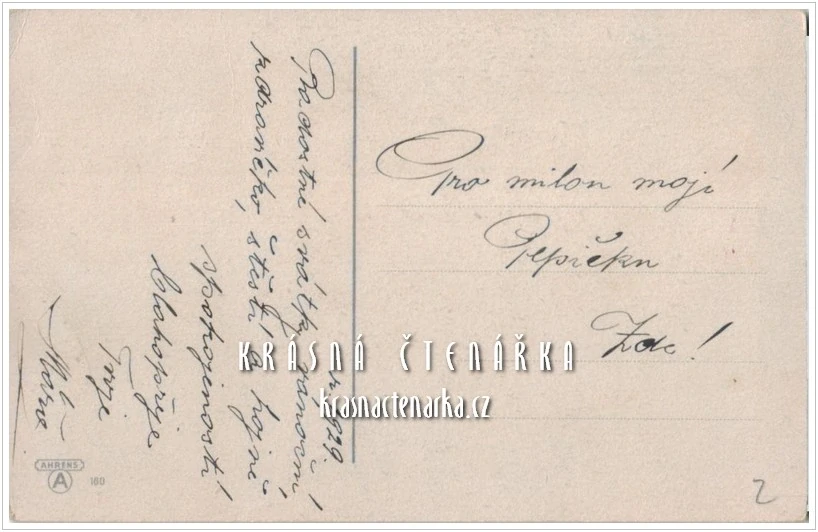 Radostné svátky vánoční
r. 1929.
zdravíčko, štěstí a hojně
spokojenosti
blahopřeje
Tvoje
Pro milou mojí
Pepičku
Zde!
KRÁSNÁ ČTENÁŘKA
krasnactenarka.cz
AHRENS
A
160
2